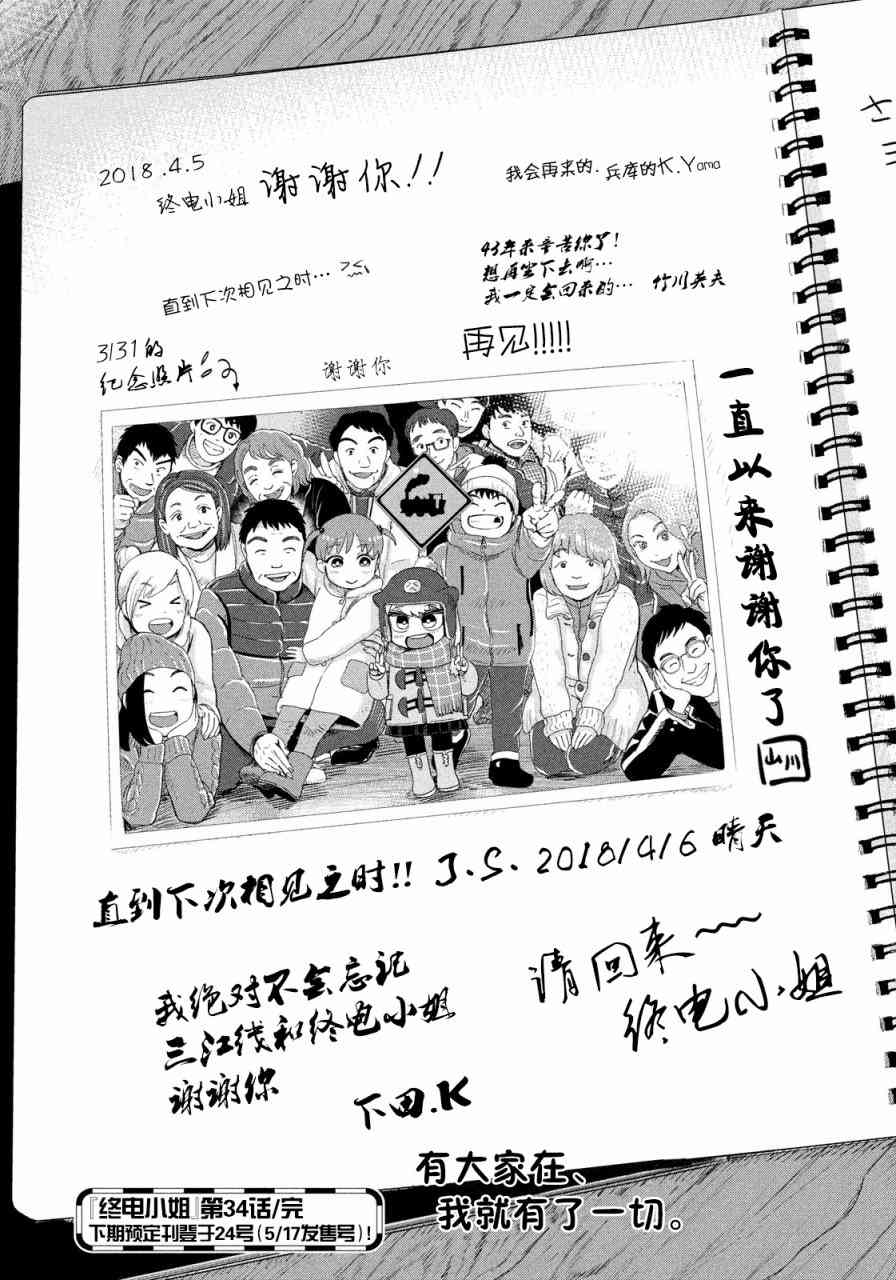 2018.4.5
终电小姐 谢谢你!!
我会再来的.兵库的K.Yama
直到下次相见之时…
43年来辛苦你了!
想再坐下去啊…
我一定会回来的… 竹川英夫
3/31的
纪念照片
谢谢你
再见!!!!!
一直以来谢谢你了
山川
直到下次相见之时!! J.S. 2018/4/6 晴天
我绝对不会忘记
三江线和终电小姐
谢谢你
下田.K
请回来~~
终电小姐
有大家在、
我就有了一切。
『终电小姐』第34话/完
下期预定刊登于24号(5/17发售号)!